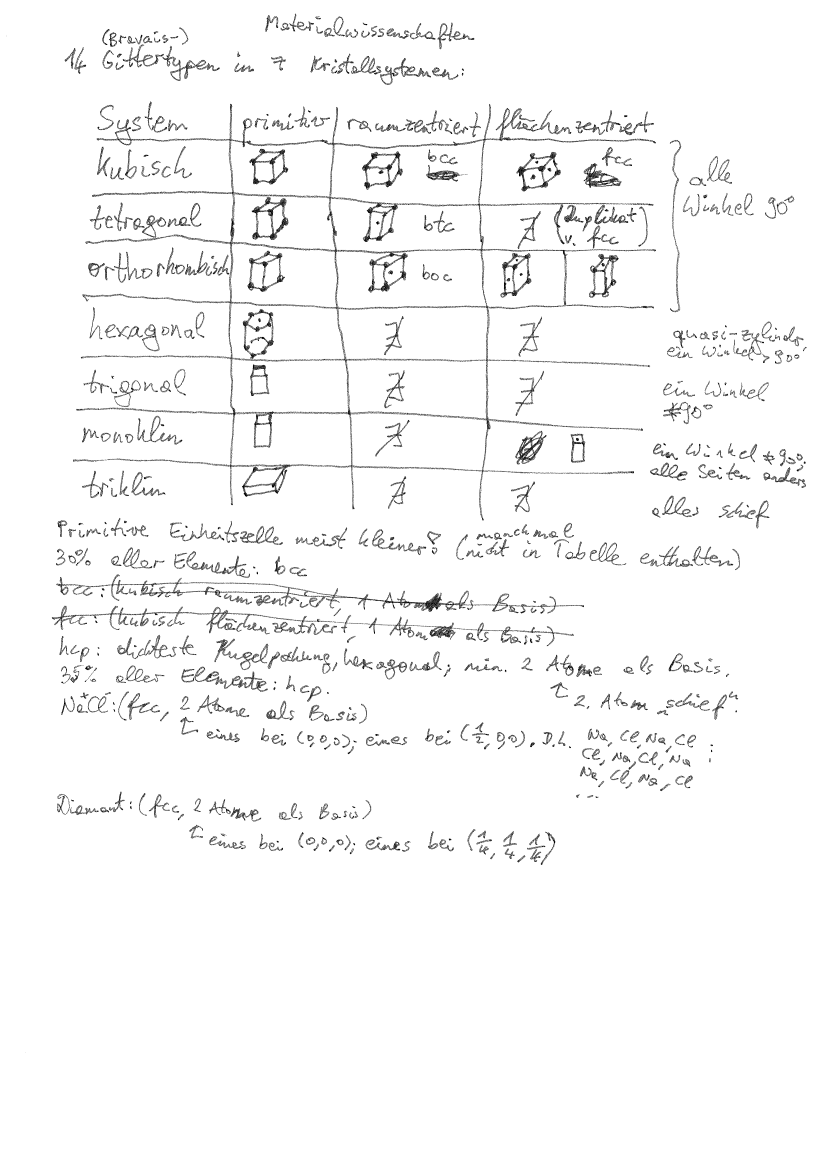 Materialwissenschaften
(Bravais-)
14 Gittertypen in 7 Kristallsystemen:
System primitiv raumzentriert flächenzentriert
kubisch bcc fcc
alle Winkel 90°
tetragonal btc ∄ (Duplikat v. fcc)
orthorhombisch boc
hexagonal ∄ ∄ quasi-zylindr., ein Winkel > 90°
trigonal ∄ ∄ ein Winkel ≠90°
monoklin ∄ ein Winkel ≠ 90°, alle Seiten anders
triklin ∄ ∄ alles schief
Primitive Einheitszelle meist kleiner! (manchmal nicht in Tabelle enthalten)
30% aller Elemente: bcc
bcc: (kubisch raumzentriert, 1 Atom als Basis)
fcc: (kubisch flächenzentriert, 1 Atom als Basis)
hcp: dichteste Kugelpackung, hexagonal; min. 2 Atome als Basis.
35% aller Elemente: hcp. ↑ 2. Atom „schief“.
Na⁺Cl⁻: (fcc, 2 Atome als Basis)
↑ eines bei (0,0,0); eines bei (1/2,0,0). D.h. Na, Cl, Na, Cl
Cl, Na, Cl, Na
Na, Cl, Na, Cl
...
Diamant: (fcc, 2 Atome als Basis)
↑ eines bei (0,0,0); eines bei (1/4, 1/4, 1/4)